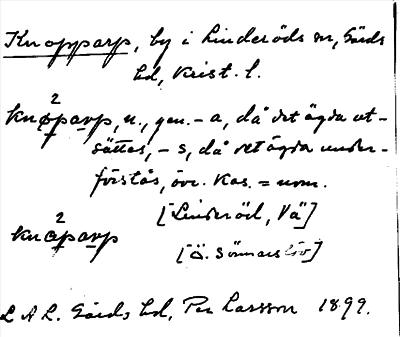 Knopparp, by i Linderöds sn, Gärds
hd, Krist. l.
2
knøparp, n., gen. -a, då det ägda ut-
sättes, -s, då det ägda under-
förstås, övr. kas. = nom.
[Linderöd, Vä]
2
knaparp
[Ö. Sönnarslöv]
L A L. Gärds hd, Per Larsson 1899.